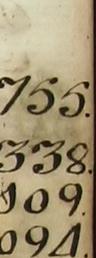 755.
338.
109.
094.